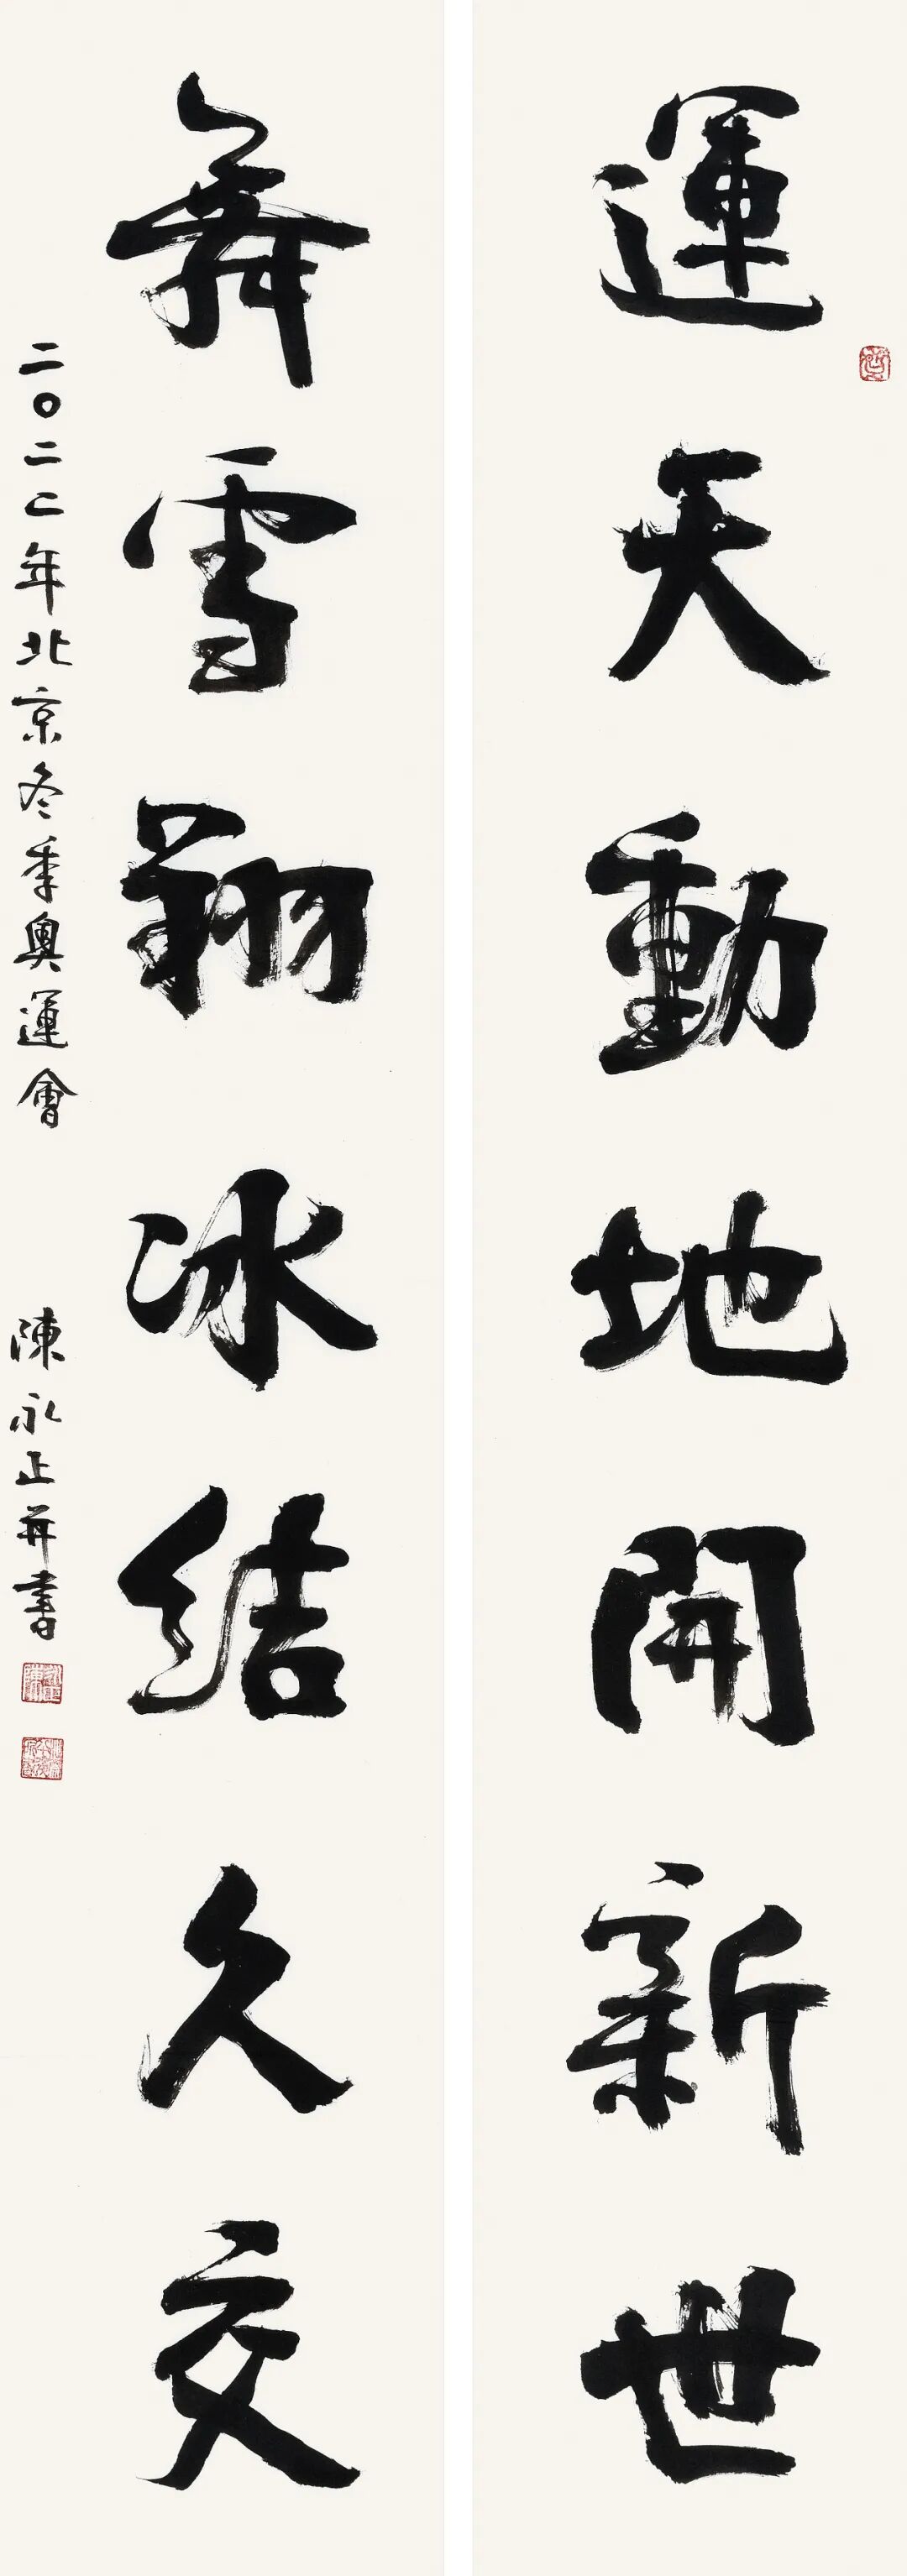 運天動地開新世
舞雪翔冰結久交
二〇二二年北京冬季奧運會 陳永正并書